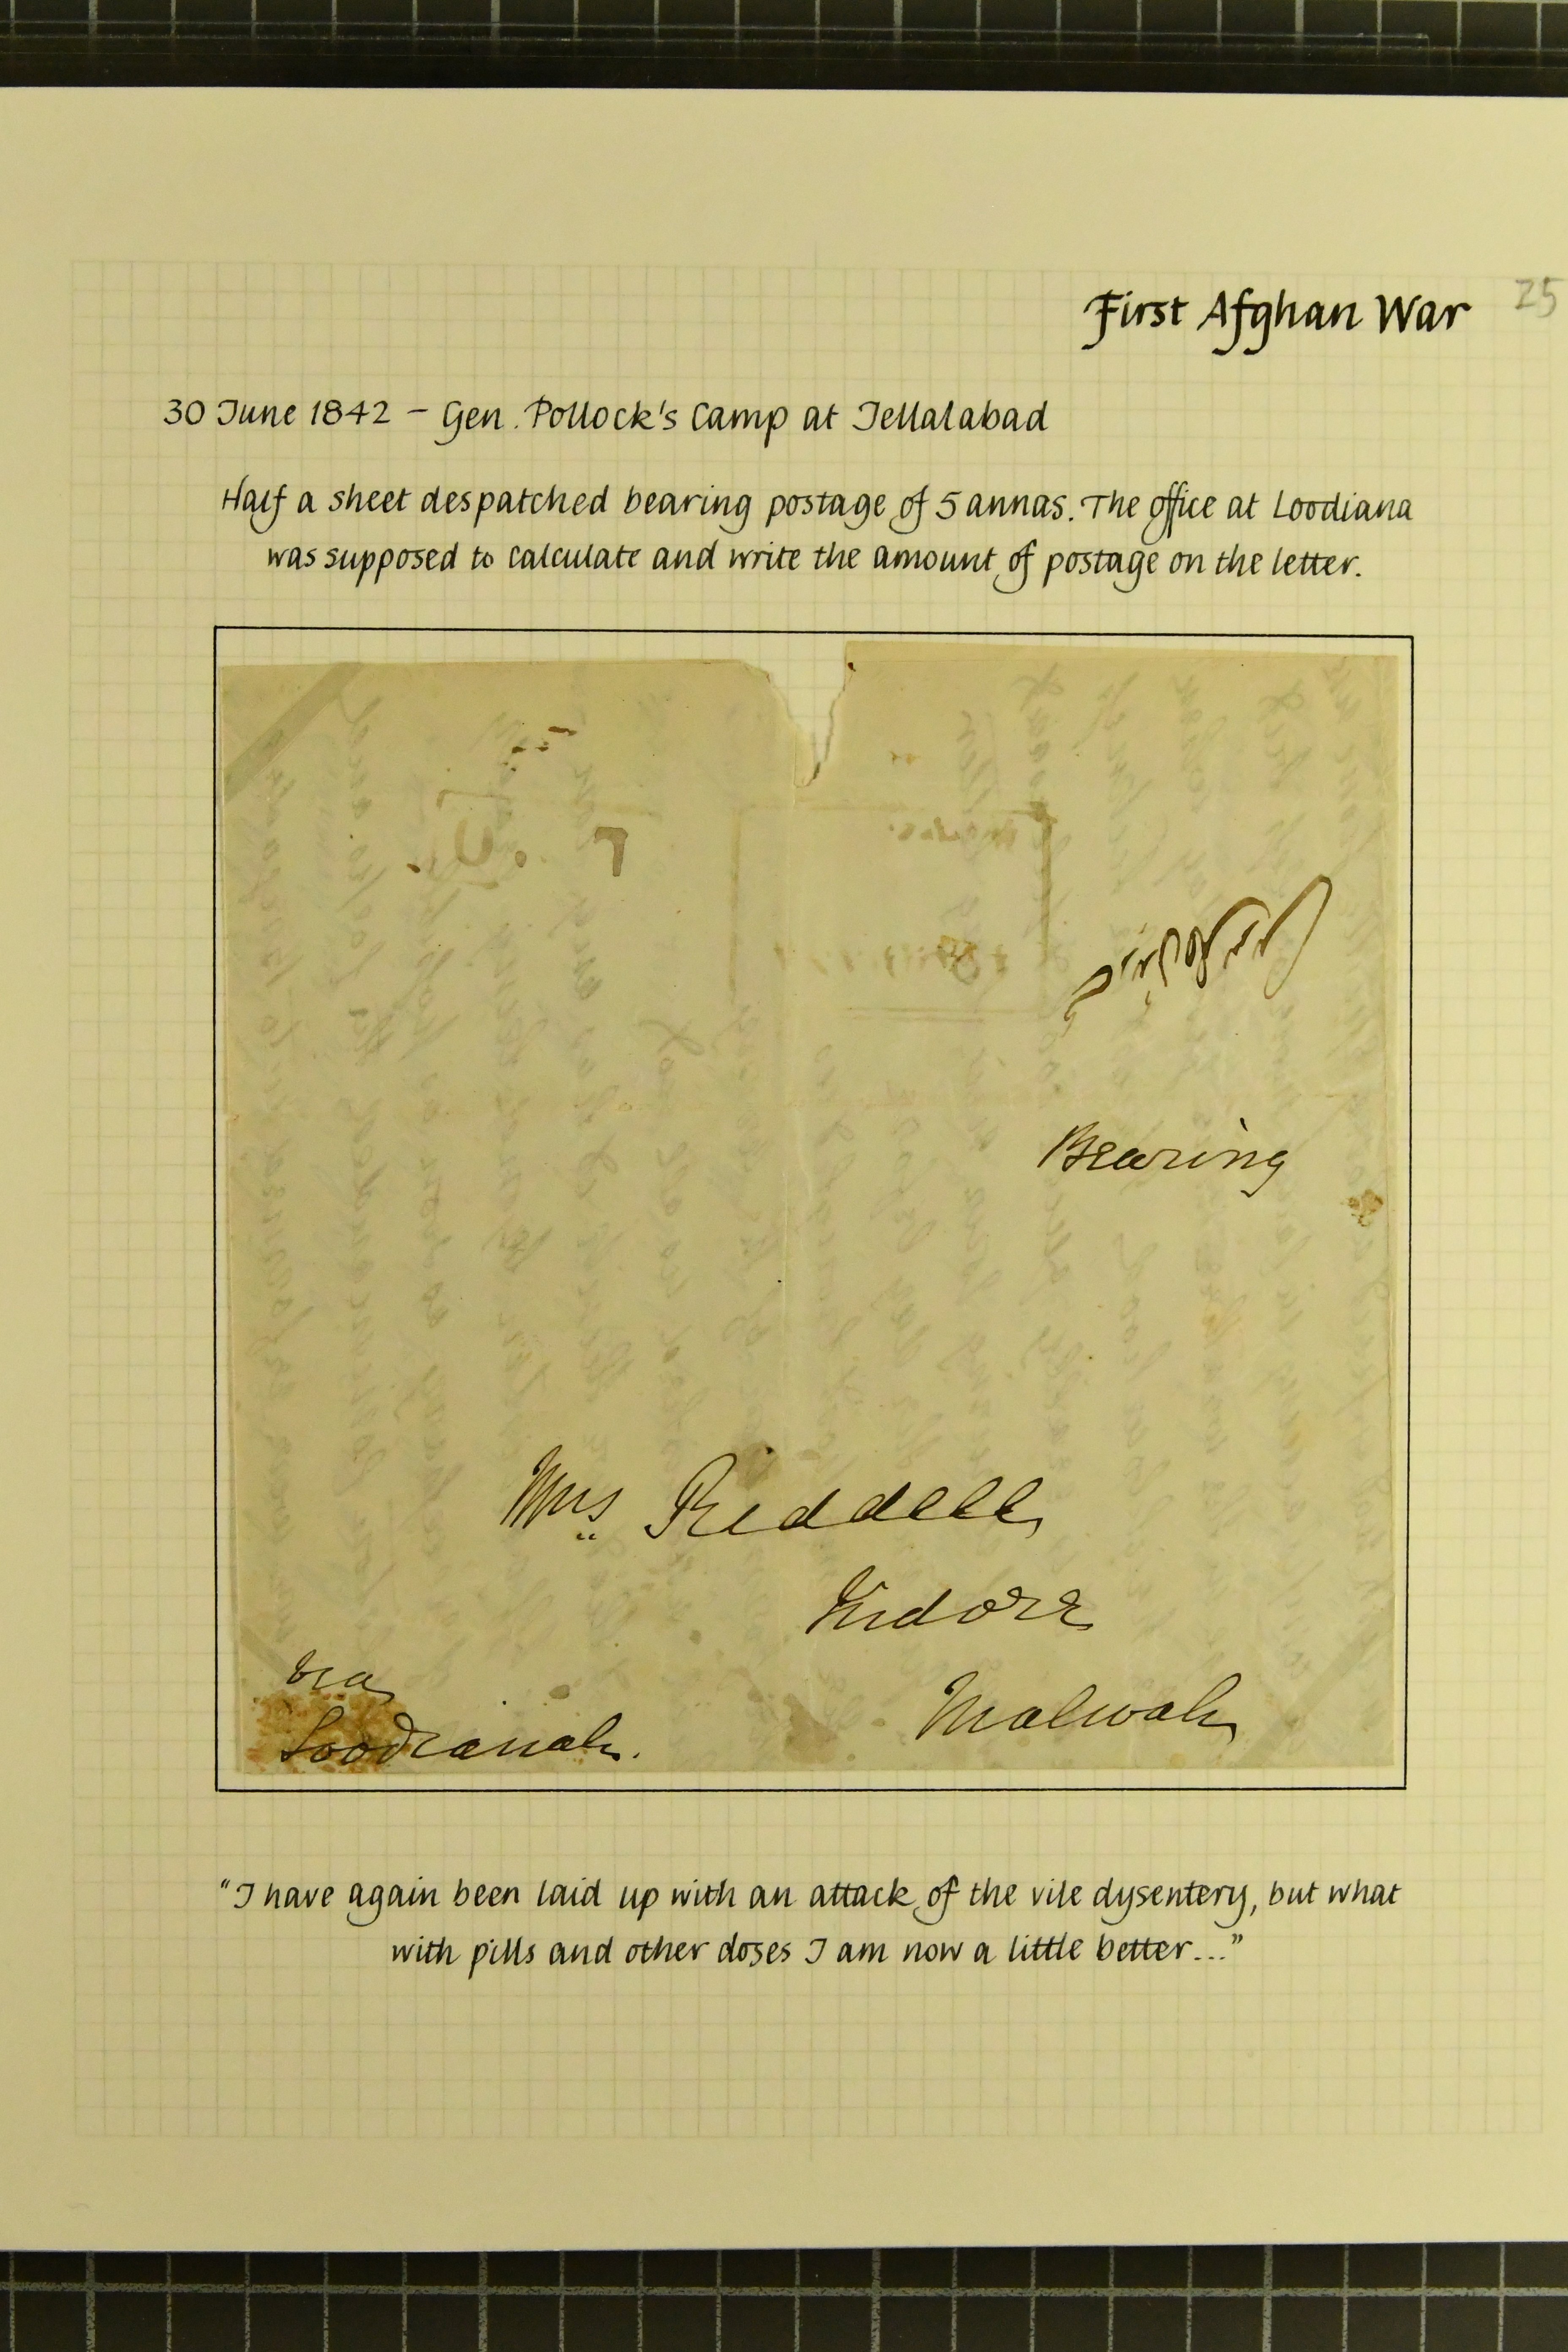 First Afghan War
25
30 June 1842 – Gen. Pollock's Camp at Jellalabad
Half a sheet despatched bearing postage of 5 annas. The office at Loodiana
was supposed to calculate and write the amount of postage on the letter.
Bearing
Mrs Riddell
Indore
Malwah
via
Loodianah.
"I have again been laid up with an attack of the vile dysentery, but what
with pills and other doses I am now a little better..."